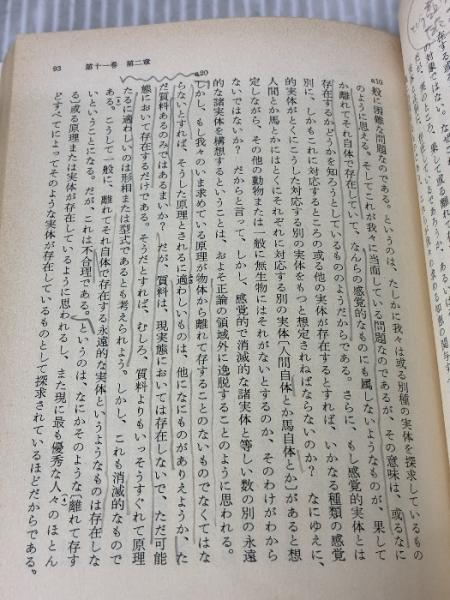 93　第十一卷　第二章
a10 般に困難な問題なのである。というのは、たしかに我々は或る別種の実体を探求しているもの
のように思える。そしてこれが我々に当面している問題なのであるが、その意味は、或るなに
か離れてそれ自体で存在していて、なんらの感覚的なものにも属しないようなものが、果して
存在するかどうかを知ろうとしているもののようだからである。さらに、もし感覚的実体とは
別に、しかもこれに対応するところの或る他の実体が存在するとすれば、いかなる種類の感覚
的実体がとくにこうした対応する別の実体をもつと想定されねばならないのか？　なにゆえに、
人間とか馬とかにはとくにそれぞれに対応する別の実体〔人間自体とか馬自体とか〕があると想
定しながら、その他の動物または一般に無生物にはそれがないとするのか、そのわけがわから
ないではないか？　だからと言って、しかし、感覚的で消滅的な諸実体と等しい数の別の永遠
a20 的な諸実体を構想するということは、およそ正論の領域外に逸脱することのように思われる。
しかし、もし我々のいま求めている原理が物体から離れて存することのないものでなくてはな
らないとすれば、そうした原理とされるに適わしいものは、他になにものがありえようか、た
だ質料あるのみではあるまいか？　だが、質料は、現実態においては存在しないで、ただ可能
態において存在するだけである。そうだとすれば、むしろ、質料よりもいっそうすぐれて原理
たるに適わしいのは形相または型式であるとも考えられよう。しかし、これも消滅的なもので
ある。こうして一般に、離れてそれ自体で存在する永遠的な実体というようなものは存在しな
いということになる。だが、これは不合理である。というのは、なにかそのような〔離れて存す
る〕或る原理または実体が存在しているように思われるし、また現に最も優秀な人々のほとん
どすべてによってそのような実体が存在しているものとして探求されているほどだからである。